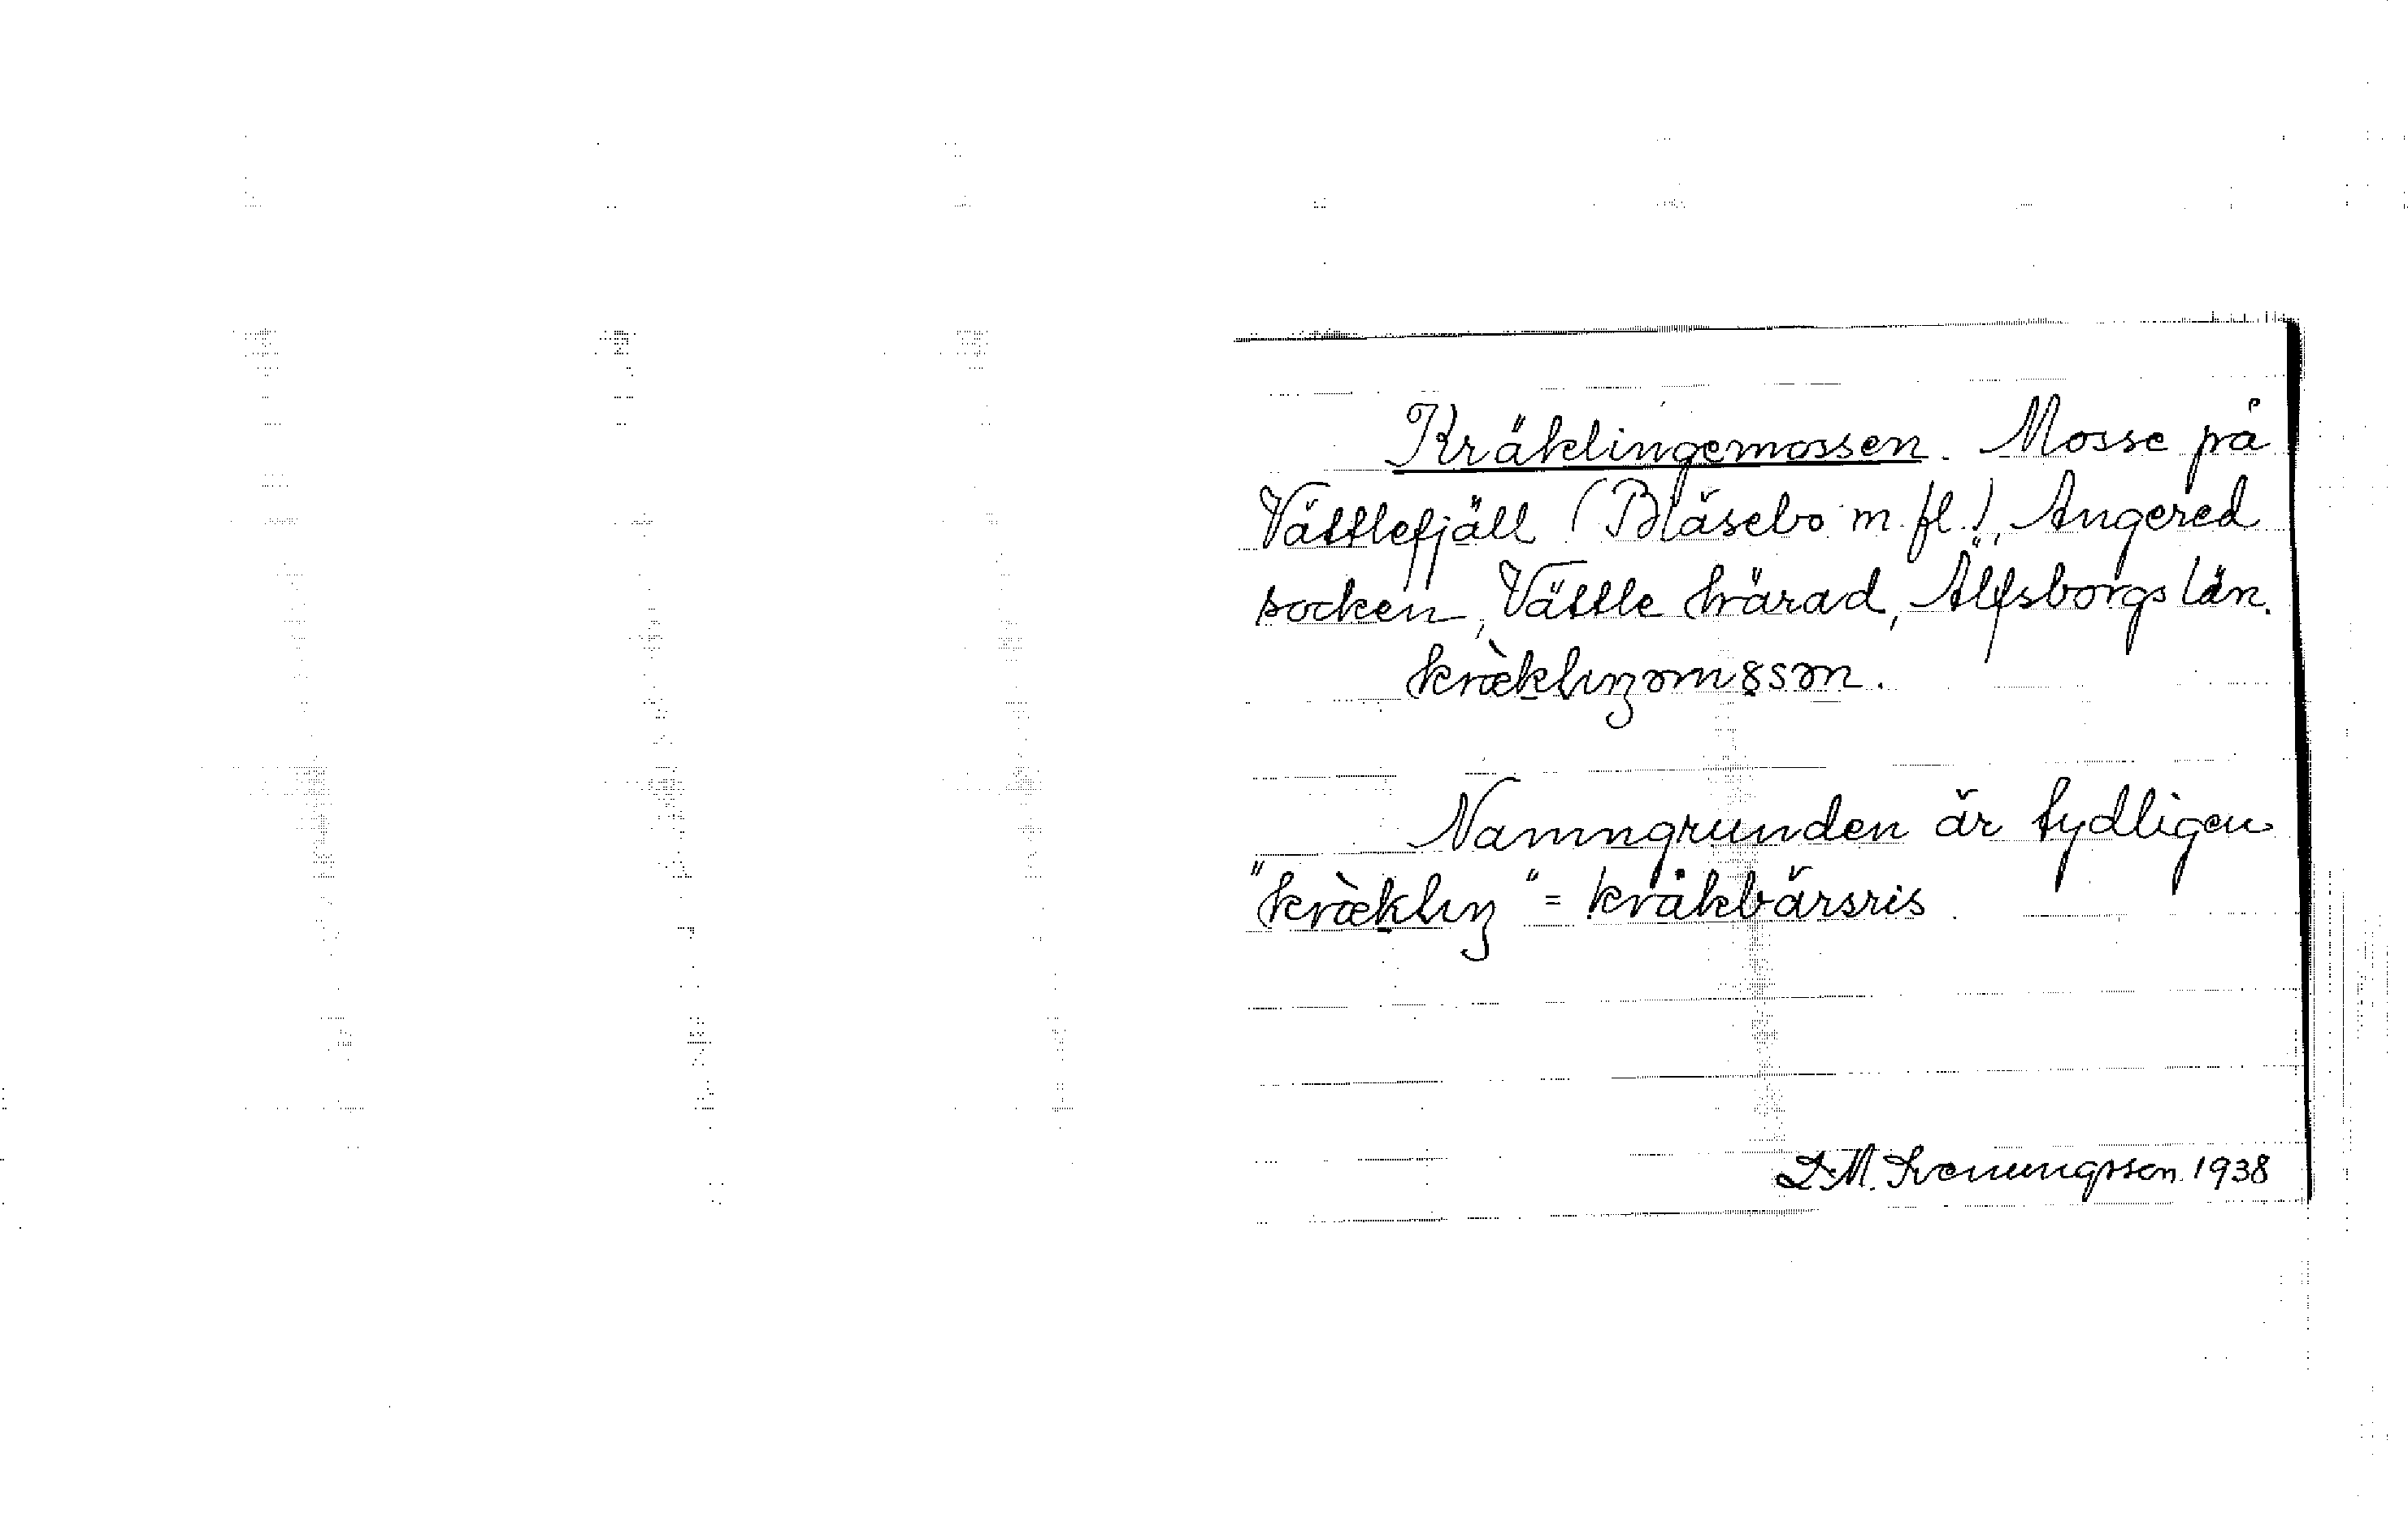 Kräklingemossen. Mosse på
Vättlefjäll (Bläsebo m. fl.), Angered
socken, Vättle härad, Älfsborgs län.
kræ̀klıŋəmɷsən.
Namngrunden är tydligen
"kræ̀klıŋ" = kråkbärsris.
D. M. Svenungsson 1938